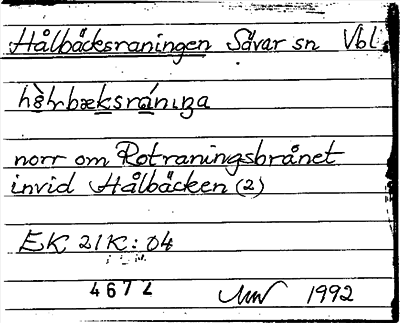 Hålbäcksraningen Sävar sn Vbl.
norr om Rotraningsbrånet
invid Hålbäcken (2)
EK 21K:04
4672
1992